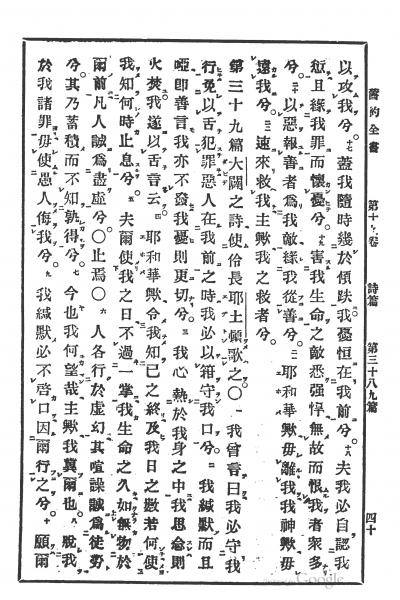 舊約全書 第十 卷 詩篇 第三十八九篇 四十
以攻我兮。十七蓋我隨時幾於傾跌我憂恒在我前兮。十八夫我必自認我
愆且緣我罪而懷憂兮。十九害我生命之敵悉强悍無故而恨我者衆多
兮。二十以惡報善者爲我敵緣我從善兮。二一耶和華歟毋離我我神歟毋
遠我兮。二二速來救我主歟我之救者兮。
第三十九篇大闢之詩使伶長耶土頓歌之〇一我曾嘗曰我必守我
行免以舌犯罪惡人在我前之時我必以箝守我口兮。二我緘默而且
啞卽善言我亦不發我憂則更切兮。三我心熱於我身之中我思愈則
火焚我遂以舌言云四耶和華歟令我知己之終及我日之數若何使
我知何時止息兮。五夫爾使我之日不過一掌我生命之久如無物於
爾前凡人誠爲盡虛兮〇止焉〇六人各行於虛幻其喧譟誠爲徒勞
兮其乃蓄積而不知孰得兮。七今也我何望哉主歟我冀爾也。八脫我
於我諸罪毋使愚人侮我兮。九我緘默必不啓口因爾行之兮。十願爾
Google